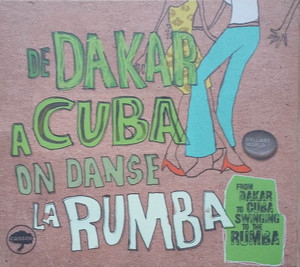 DE DAKAR
A CUBA
ON DANSE
LA RUMBA
FROM
DAKAR
TO CUBA
SWINGING
TO THE
RUMBA